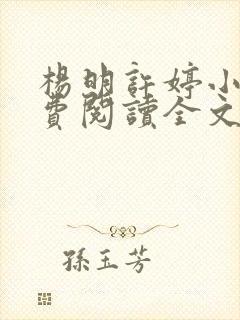 楊明許婷小
費閱讀全文
孫玉芳